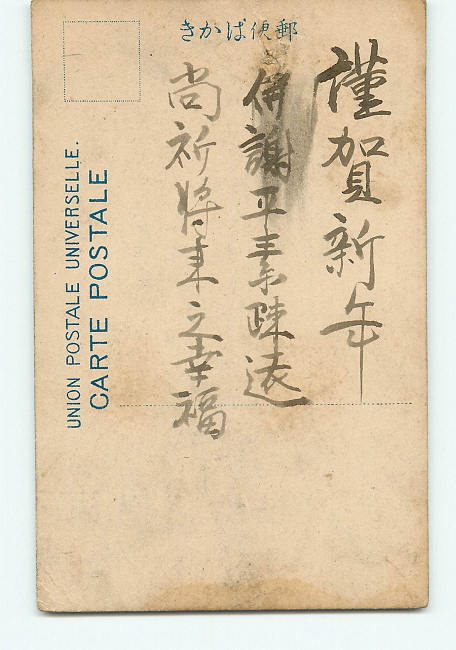 郵便ばかき
謹賀新年
併謝平素踈遠
尚祈将来之幸福
UNION POSTALE UNIVERSELLE.
CARTE POSTALE